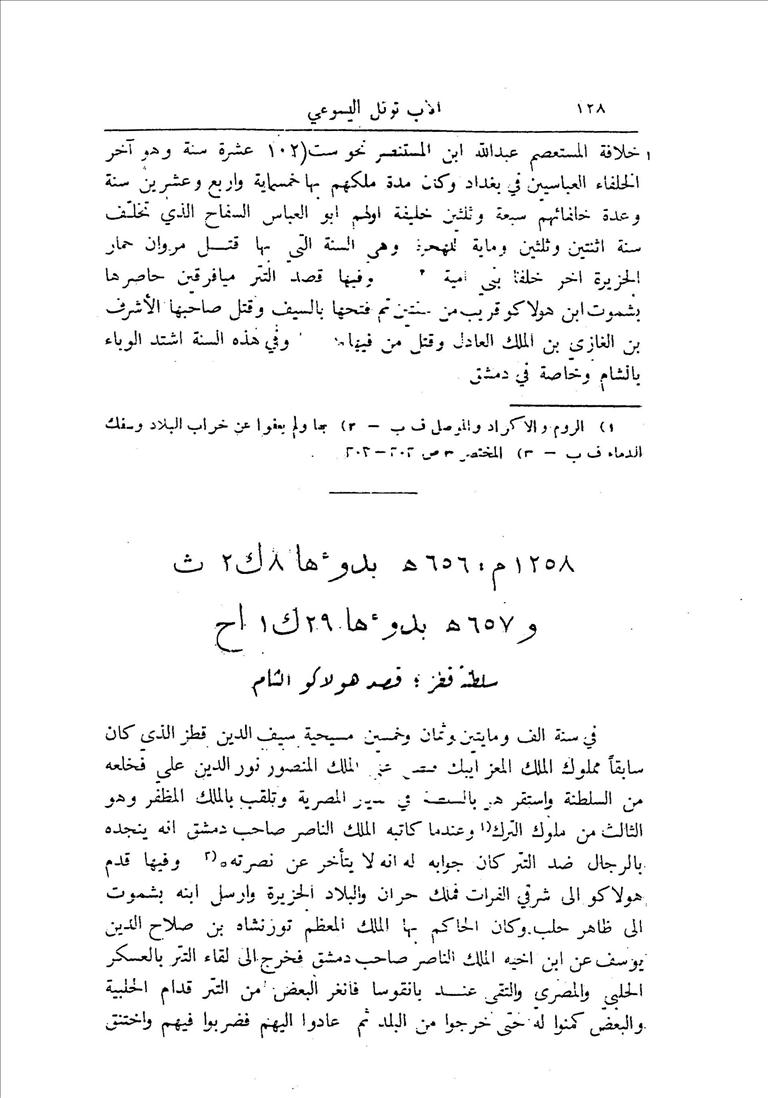 ١٢٨ الاب توتل اليسوعي
خلافة المستعصم عبدالله ابن المستنصر نحو ست عشرة سنة وهو آخر
الخلفاء العباسيين في بغداد وكان مدة ملكهم بها خمسماية واربع وعشرين سنة
وعدة خلفائهم سبعة وثلثين خليفة اولهم ابو العباس السفاح الذي تخلّف
سنة اثنتين وثلثين وماية للهجرة وهي السنة التي بها قتل مروان حمار
الجزيرة اخر خلفا بني امية وفيها قصد التتر ميافرقين حاصرها
بشموت ابن هولاكو قريب من سنتين ثم فتحها بالسيف وقتل صاحبها الأشرف
بن الغازي بن الملك العادل وقتل من فيها وفي هذه السنة اشتد الوباء
بالشام وخاصة في دمشق
١) الروم والاكراد والموصل ف ب – ٢) بها ولم يعفوا عن خراب البلاد وسفك
الدماء ف ب – ٣) المختصر ٣ ص ٢٠٢–٢٠٣
١٢٥٨ م: ٦٥٦ ه بدوءها ٨ ك٢ ث
و ٦٥٧ ه بدوءها ٢٩ ك١ اح
سلطنة قطز ؛ قصد هولاكو الشام
في سنة الف ومايتين وثمان وخمسين مسيحية سيف الدين قطز الذي كان
سابقاً مملوك الملك المعز ايبك على الملك المنصور نور الدين علي فخلعه
من السلطنة واستقر هو بالسلطنة في المصرية وتلقب بالملك المظفر وهو
الثالث من ملوك الترك(١ وعندما كاتبه الملك الناصر صاحب دمشق انه ينجده
بالرجال ضد التتر كان جوابه له انه لا يتأخر عن نصرته(٢ وفيها قدم
هولاكو الى شرقي الفرات فملك حران والبلاد الجزيرة وارسل ابنه بشموت
الى ظاهر حلب. وكان الحاكم بها الملك المعظم تورنشاه بن صلاح الدين
يوسف عن ابن اخيه الملك الناصر صاحب دمشق فخرج الى لقاء التتر بالعسكر
الحلبي والمصري والتقى عند بانقوسا فانغر البعض من التتر قدام الحلبية
والبعض كمنوا له حتى خرجوا من البلد ثم عادوا اليهم فضربوا فيهم واختنق